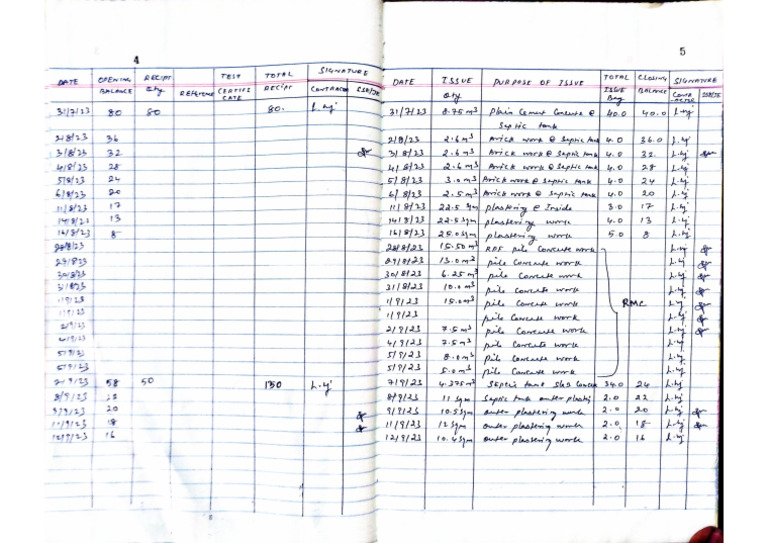 4
DATE OPENING BALANCE RECIPT Qty REFERENCE TEST CERTIFICATE TOTAL RECIPT SIGNATURE CONTRACTOR
31/7/23 80 80 80. L.y
2/8/23 36
3/8/23 32
4/8/23 28
5/8/23 24
6/8/23 20
11/8/23 17
14/8/23 13
16/8/23 8
28/8/23
29/8/23
30/8/23
31/8/23
1/9/23
1/9/23
2/9/23
4/9/23
5/9/23
5/9/23
7/9/23 58 50 130 L.y
8/9/23
9/9/23 20
11/9/23 18
12/9/23 16
5
DATE ISSUE Qty PURPOSE OF ISSUE TOTAL ISSUE Bag CLOSING BALANCE SIGNATURE
31/7/23 8.75 m³ Plain Cement Concrete @ Septic tank 40.0 40.0 L.y
2/8/23 2.6 m³ Brick work @ Septic tank 4.0 36.0 L.y
3/8/23 2.6 m³ Brick work @ Septic tank 4.0 32. L.y
4/8/23 2.6 m³ Brick work @ Septic tank 4.0 28 L.y
5/8/23 3.0 m³ Brick work @ Septic tank 4.0 24 L.y
6/8/23 2.5 m³ Brick work @ Septic tank 4.0 20 L.y
11/8/23 22.5 Sqm plastering @ Inside 3.0 17 L.y
14/8/23 22.5 Sqm plastering work 4.0 13 L.y
16/8/23 25.0 Sqm plastering work 5.0 8 L.y
28/8/23 15.50 m³ pile Concrete work L.y
29/8/23 13.0 m³ pile Concrete work L.y
30/8/23 6.25 m³ pile Concrete work L.y
31/8/23 10.0 m³ pile Concrete work L.y
1/9/23 15.0 m³ pile Concrete work RMC L.y
1/9/23 pile Concrete work L.y
2/9/23 7.5 m³ pile Concrete work L.y
4/9/23 7.5 m³ pile Concrete work L.y
5/9/23 8.0 m³ pile Concrete work L.y
5/9/23 5.0 m³ pile Concrete work L.y
7/9/23 4.375 m³ Septic tank Slab 34.0 24 L.y
8/9/23 11 Sqm Septic tank outer 2.0 22 L.y
9/9/23 10.5 Sqm outer plastering work 2.0 20 L.y
11/9/23 12 Sqm outer plastering work 2.0 18 L.y
12/9/23 10.4 Sqm outer plastering work 2.0 16 L.y